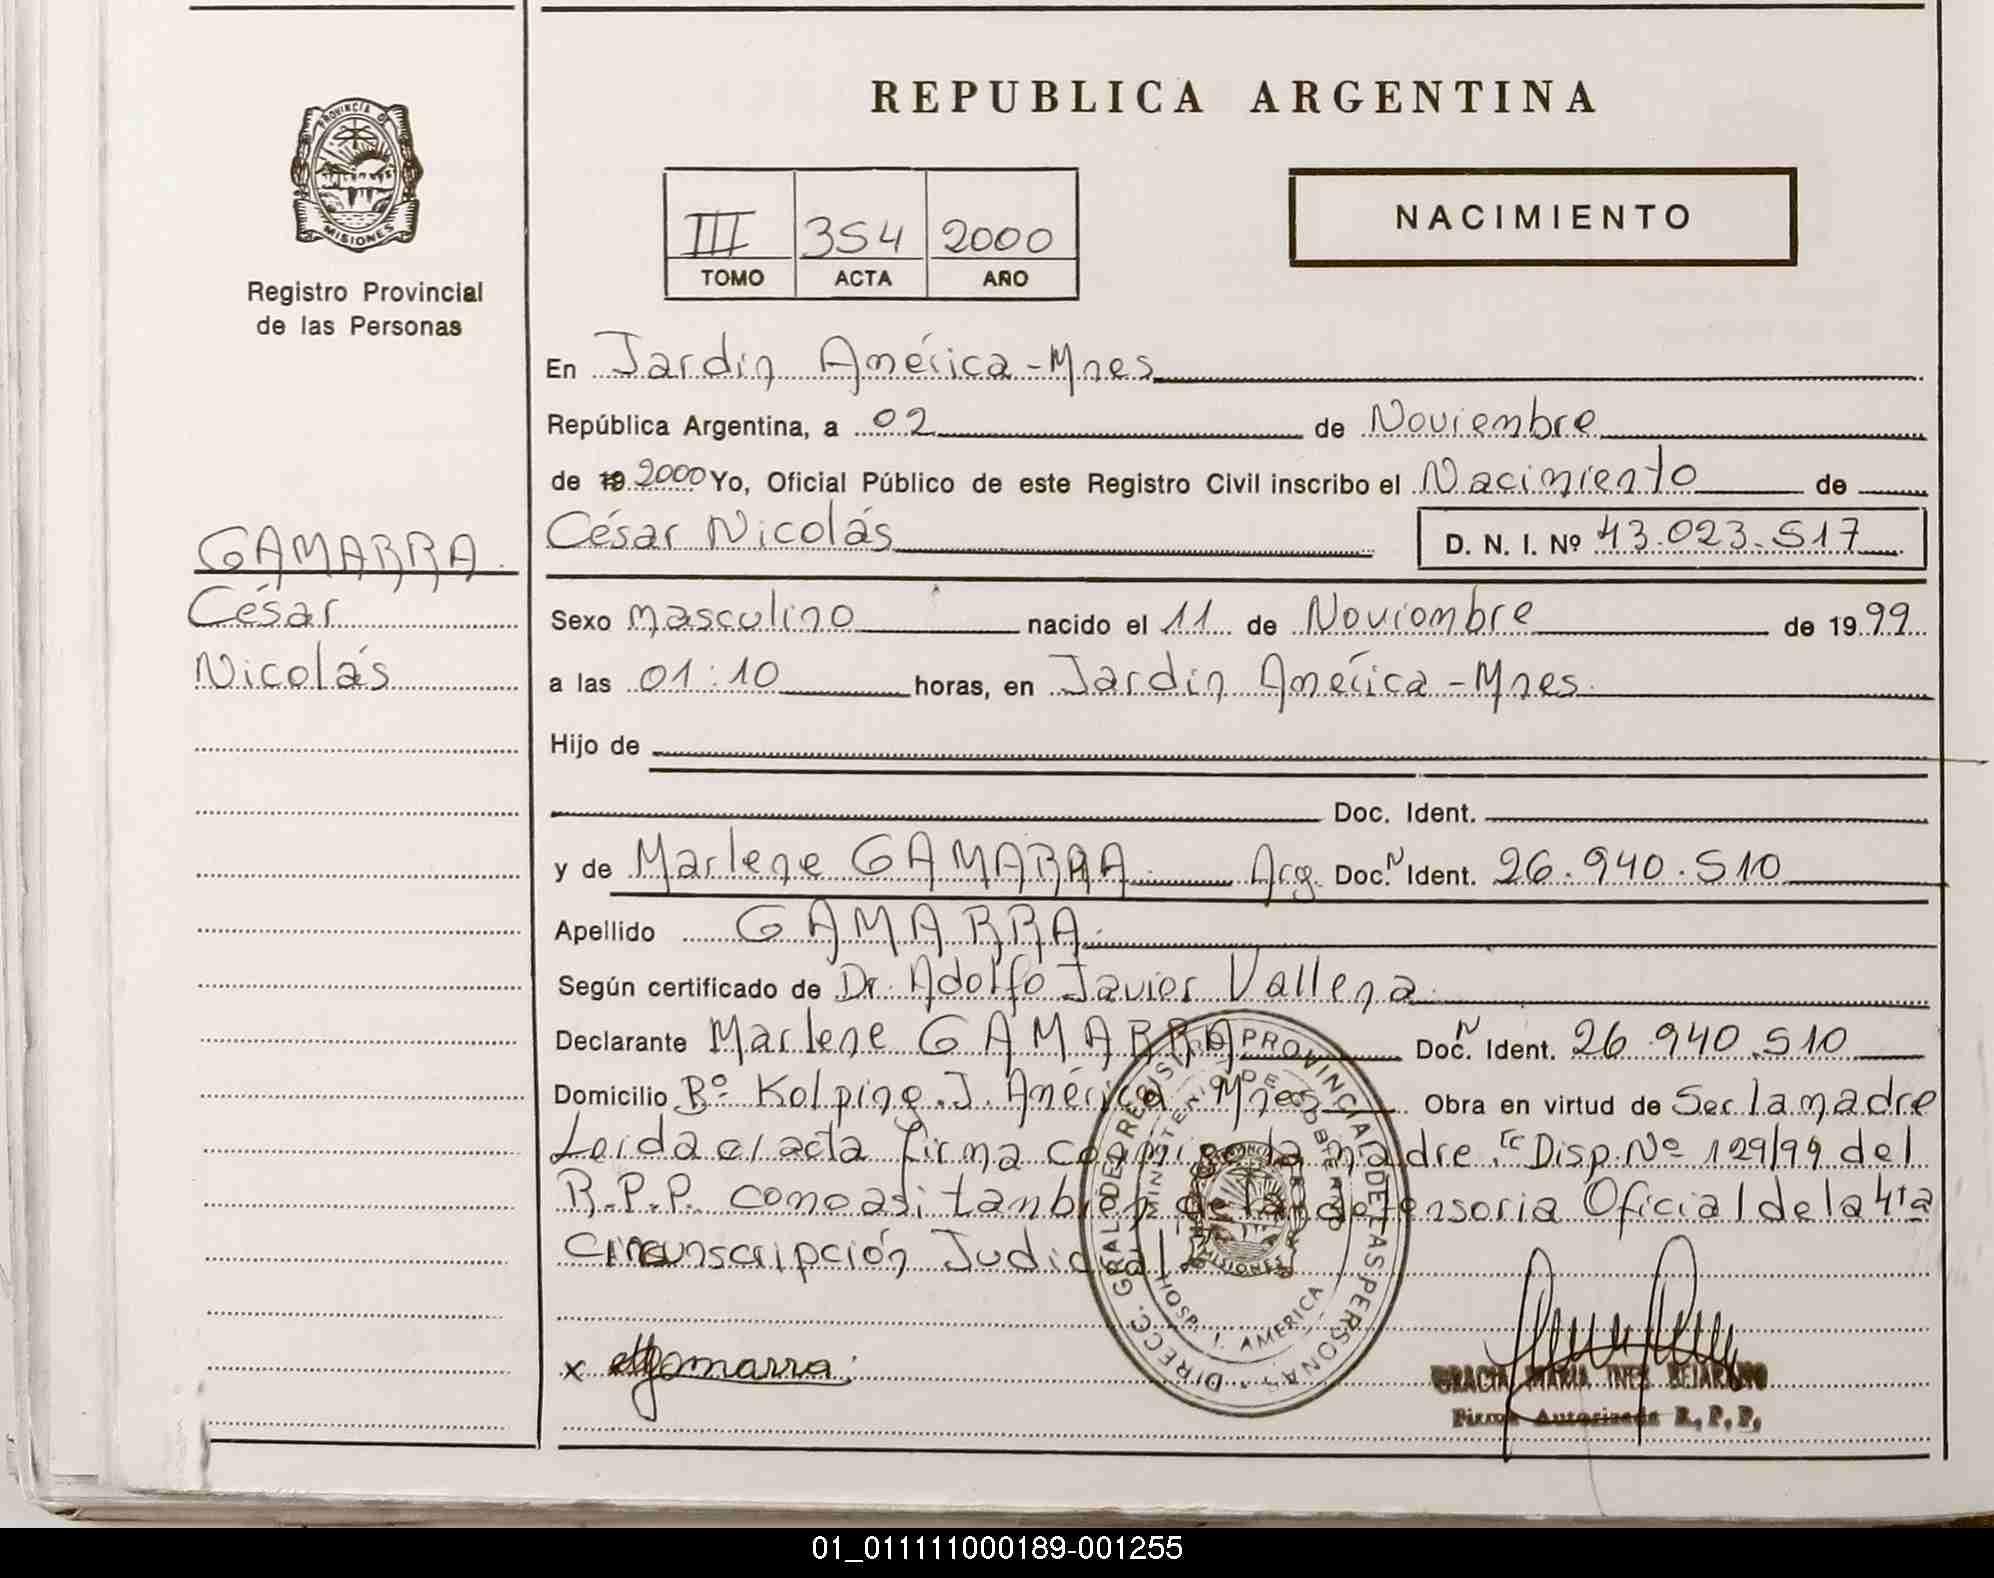 REPUBLICA ARGENTINA
PROVINCIA DE
MISIONES
Registro Provincial
de las Personas
III 354 2000
TOMO ACTA AÑO
NACIMIENTO
En Jardín América - Mnes
República Argentina, a 02 de Noviembre
de 19 2000 Yo, Oficial Público de este Registro Civil inscribo el Nacimiento de
César Nicolás D. N. I. Nº 43.023.517
GAMARRA
César
Nicolás
Sexo masculino nacido el 11 de Noviembre de 1999
a las 01:10 horas, en Jardín América - Mnes.
Hijo de
Doc. Ident.
y de Marlene GAMARRA. Arg. Doc. N Ident. 26.940.510
Apellido GAMARRA.
Según certificado de Dr. Adolfo Javier Vallena.
Declarante Marlene GAMARRA Doc. N Ident. 26.940.510
Domicilio Bº Kolping. J. América Mnes Obra en virtud de Ser la madre
Leida el acta firma conmigo la madre. Disp. Nº 129/99 del
R.P.P. como asi tambien de la defensoria Oficial de la 4ta
Circunscripción Judicial
DIRECC. GRAL. DE REGISTRO PROVINCIAL DE LAS PERSONAS
MINISTERIO DE GOBIERNO
HOSP. J. AMERICA
MISIONES
x Gamarra.
GRACIA MARIA INES BEJARANO
Firma Autorizada R. P. P.
01_011111000189-001255